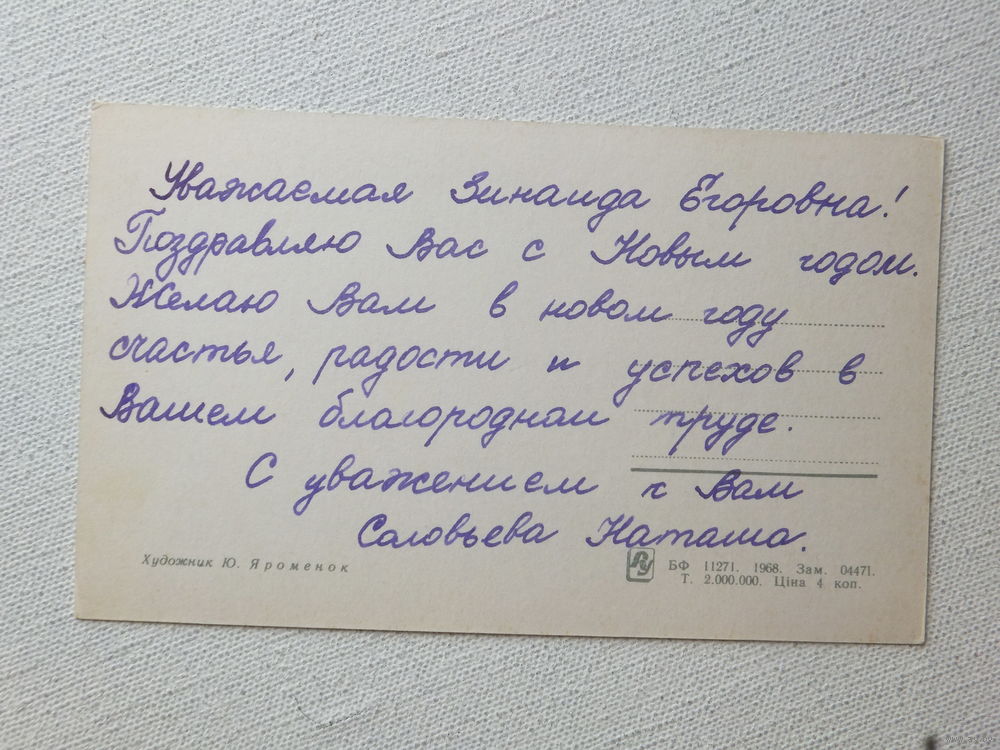 Уважаемая Зинаида Егоровна!
Поздравляю Вас с Новым годом.
Желаю Вам в новом году
счастья, радости и успехов в
Вашем благородном труде.
С уважением к Вам
Соловьева Наташа.
Художник Ю. Яроменок
БФ 11271. 1968. Зам. 04471.
Т. 2.000.000. Ціна 4 коп.